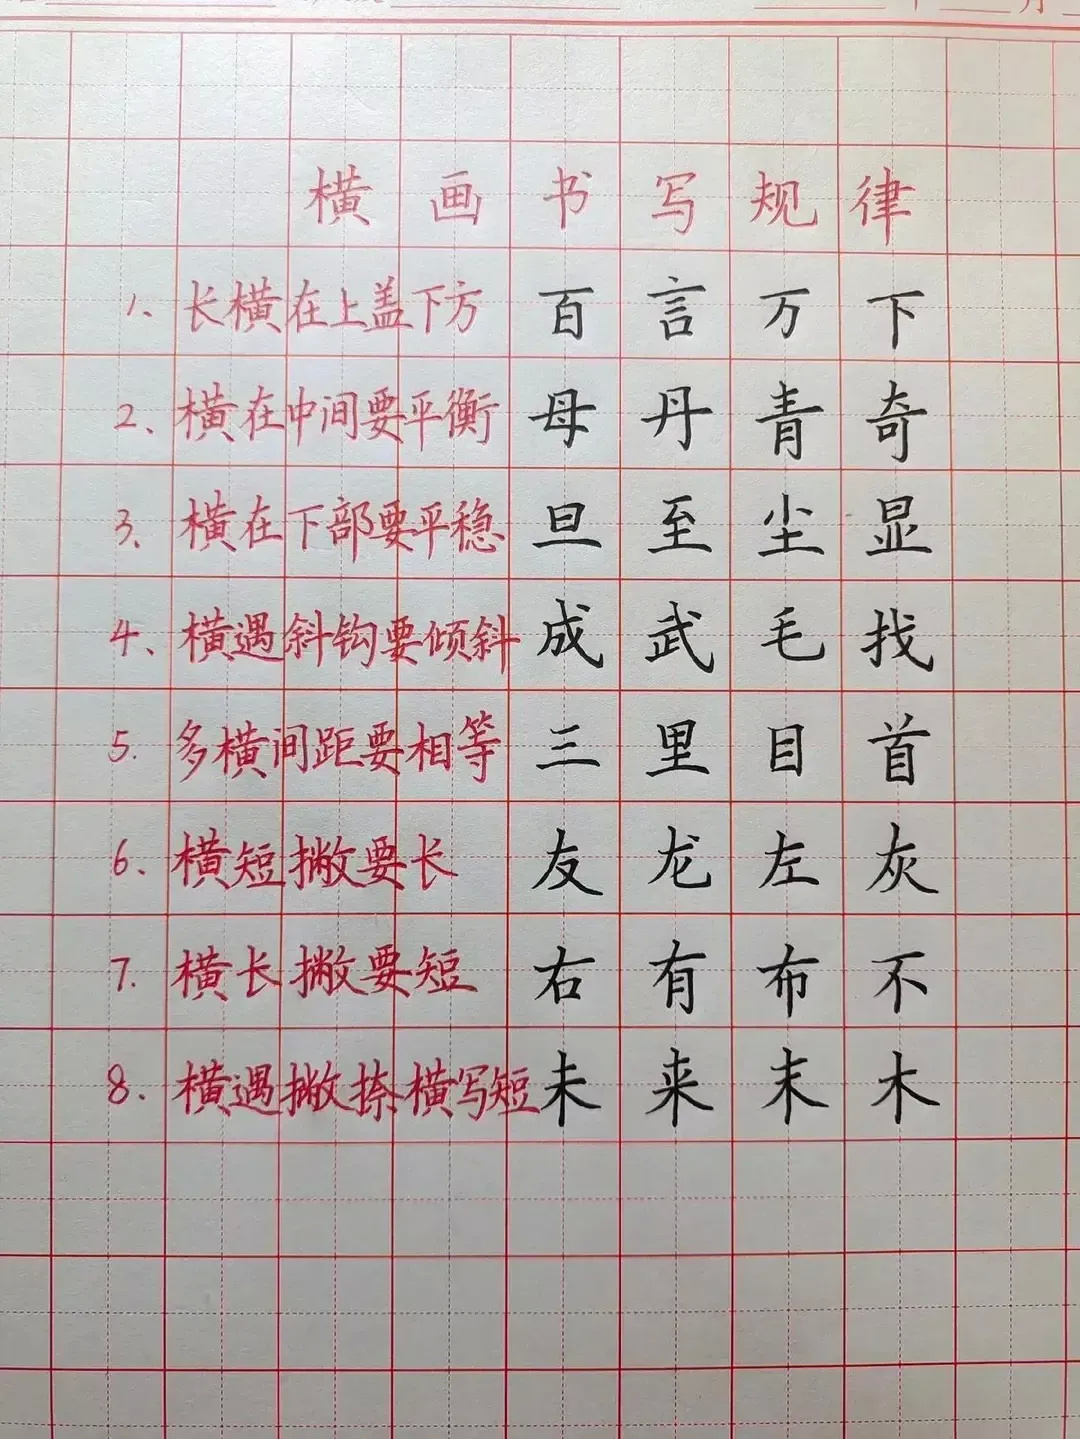 年 月
横画书写规律
1、长横在上盖下方 百 言 万 下
2、横在中间要平衡 母 丹 青 奇
3、横在下部要平稳 旦 至 尘 显
4、横遇斜钩要倾斜 成 武 毛 找
5. 多横间距要相等 三 里 目 首
6. 横短撇要长 友 龙 左 灰
7. 横长撇要短 右 有 布 不
8. 横遇撇捺横写短 未 来 末 木